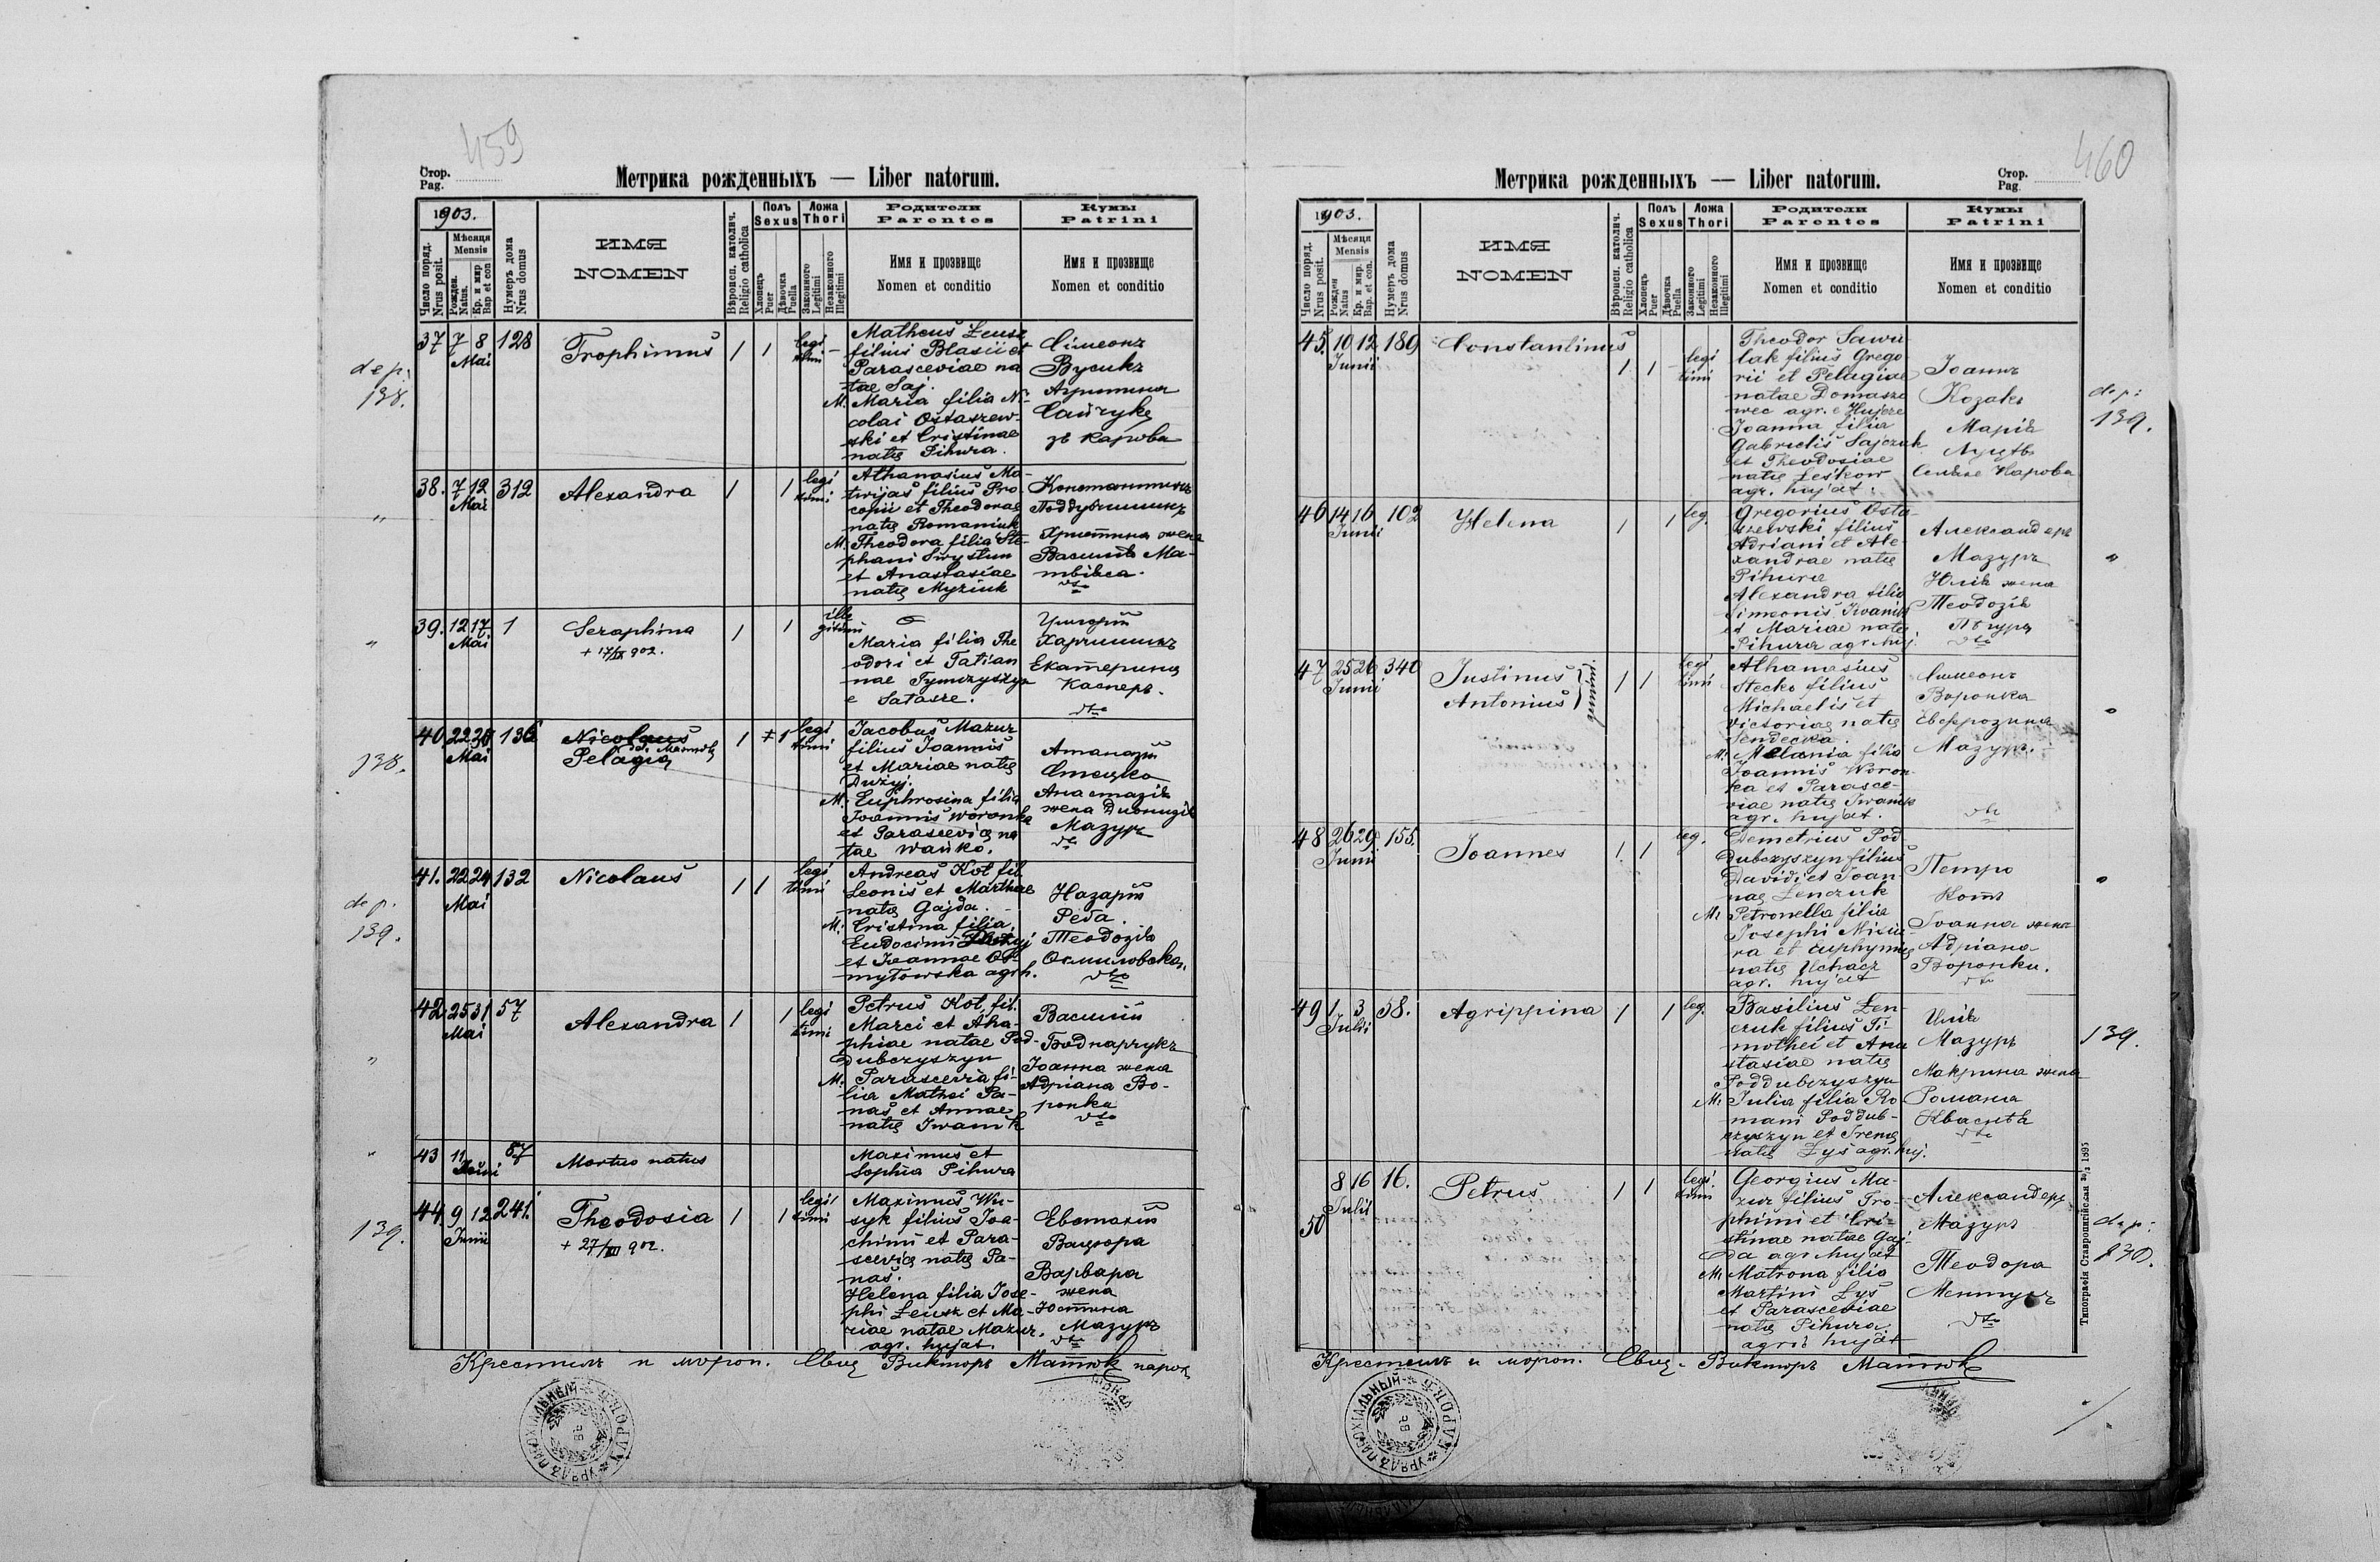 459
Стор.
Pag.
Метрика рожденныхъ — Liber natorum.
1903.
Число поряд.
Nrus posit.
Мѣсяця
Mensis
Рожден.
Natus.
Кр. и мир
Bap et con
Нумеръ дома
Nrus domus
ИМЯ
NOMEN
Вѣроисп. католич.
Religio catholica
Полъ
Sexus
Хлопець
Puer
Дѣвочка
Puella
Ложа
Thori
Законного
Legitimi
Незаконного
Illegitimi
Родители
Parentes
Имя и прозвище
Nomen et conditio
Кумы
Patrini
Имя и прозвище
Nomen et conditio
dep:
138.
37 7 8 128
Mai
Trophimus
1 1
legi
timi
Matheus Leusz
filius Blasii et
Parasceviae na
tae Saj.
M. Maria filia Ni-
colai Ostaszew-
ski et Cristinae
natę Pihura.
Сімеонъ
Вусикъ
зъ Карова
38. 7 12 312
Mai
Alexandra
1 1
legi
timi
Athanasius Ma-
twijas filius Pro
copii et Theodorae
natę Romaniuk
M. Theodora filia Ste-
phani Swystun
et Anastasiae
natę Myziuk
Константинъ
Поддубчишинъ
Христина жена
Василія Ма-
твійса.
dto
39. 12 17 1
Mai
Seraphina
+ 17/IX 902.
1 1
ille
gitimi
Maria filia The
odori et Tatian
nae Tymczyszyn
e Satasze.
Григорій
Харчишинъ
Екатерина
Касперъ.
dto
138.
40. 22 30 136
Mai
Nicolaus
Pelagia
1 1
legi
timi
Jacobus Mazur
filius Joannis
et Mariae natę
Dużyj.
M. Euphrosina filia
Joannis Woronka
et Parascevię na
tae Wańko.
Атаназій
Стецко
Анастазія
жена Діонизія
Мазуръ
dto
dep.
139.
41. 22 24 132
Mai
Nicolaus
1 1
legi
timi
Andreas Kot fil.
Leonis et Marthae
natę Gajda.
M. Cristina filia
Eudocimi
et Joannae Os-
mytowska agr h.
Назарій
Реба.
Теодозія
Осмиловска.
dto
42 25 31 57
Mai
Alexandra
1 1
legi
timi
Petrus Kot, fil.
Marci et Aha-
phiae natae Pod-
dubczyszyn
M. Parascevia fi-
lia Mathei Pa-
nas et Annae
natę Iwanik
Василій
Боднарчукъ
Іоанна жена
Адріана Во-
ронка
dto
43 11 57
Junii
Mortuo natus
Maximus et
Sophia Pihura
139.
44 9 12 241.
Junii
Theodosia
+ 27/III 902.
1 1
legi
timi
Maximus Wu-
syk filius Joa-
chimi et Para-
scevię natę Pa-
nas.
Helena filia Jose-
phi Leusz et Ma-
riae natae Mazur.
agr. hujat.
Евстахій
Вацюра
Варвара
жена
Юстина
Мазуръ
dto
Крестилъ и мѵроп. Свщ Викторъ Матюкъ парох
460
Стор.
Pag
Метрика рожденныхъ — Liber natorum.
1903.
Число поряд.
Nrus posit.
Мѣсяця
Mensis
Рожден
Natus
Кр. и мир.
Bap. et con.
Нумеръ дома
Nrus domus
ИМЯ
NOMEN
Вѣроисп. католич.
Religio catholica
Полъ
Sexus
Хлопець
Puer
Дѣвочка
Puella
Ложа
Thori
Законного
Legitimi
Незаконного
Illegitimi
Родители
Parentes
Имя и прозвище
Nomen et conditio
Кумы
Patrini
Имя и прозвище
Nomen et conditio
45. 10 12 189
Junii
Constantinus
1 1
legi
timi
Theodor Sawu
lak filius Grego
rii et Pelagiae
natae Domasze
wec agr. e Hujcze
Joanna filia
Gabrielis Sajczuk
et Theodosiae
natę Leśkow
agr. hujat.
Іоаннъ
Козакъ
Марія
Селяне Карова
dep:
139.
46 14 16 102
Junii
Helena
1 1
leg.
Gregorius Osta-
szewski filius
Adriani et Ale-
xandrae natę
Pihura
Alexandra filia
Simeonis Iwanik
et Mariae natę
Pihura agr. huj.
Александеръ
Мазуръ
Юлія жена
Теодозія
Пѣгура
dto
47 25 26 340
Junii
Justinus
Antonius
gemini.
1 1
legi
timi
Athanasius
Stecko filius
Michaelis et
Victoriae natę
Sendecka.
M. Melania filia
Joannis Woron
ka et Parasce-
viae natę Iwanik
agr. hujat.
Симеонъ
Воронка
Евфрозина
Мазуръ.
dto
48 26 29 155.
Junii
Joannes
1 1
leg.
Demetrius Pod
dubczyszyn filius
Davidi et Joan-
nae Lenczuk
M. Petronella filia
Josephi Misiu-
ra et Euphymię
natę Uchacz
agr. hujat
Петро
Котъ
Іоанна жена
Адріана
Воронки.
dto
49 1 3 58.
Julii
Agrippina
1 1
leg.
Basilius Len-
czuk filius Ti-
mothei et Ana
stasiae natę
Poddubczyszyn
M. Julia filia Ro
mani Poddub-
czyszyn et Irenę
natę Lys agr. huj.
Илія
Мазуръ
Макрина жена
Романа
dto
139.
8 16 16.
Julii
50
Petrus
1 1
legi
timi
Georgius Ma-
zur filius Tro-
phimi et Cri-
stinae natae Gaj-
da agr. hujat
M. Matrona filia
Martini Lys
et Parasceviae
natę Pihura
agri. hujat
Александеръ
Мазуръ
Теодора
dto
dep:
Крестилъ и мѵроп. Свщ. Викторъ Матюкъ
Типографія Ставропигійская
1895